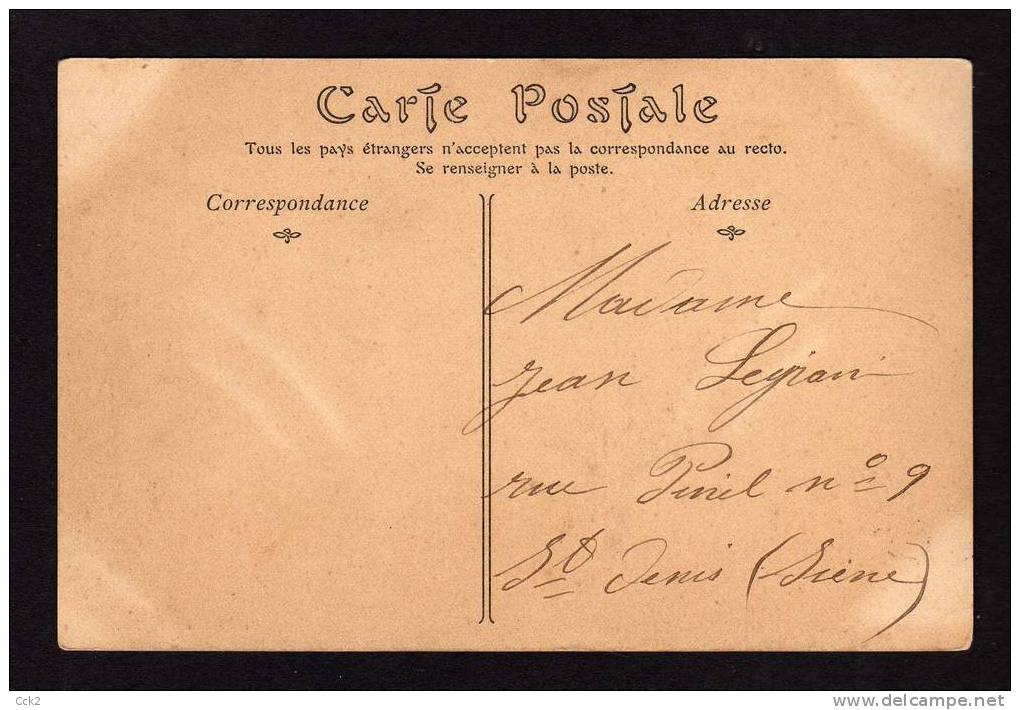 Carte Postale
Tous les pays étrangers n'acceptent pas la correspondance au recto.
Se renseigner à la poste.
Correspondance
Adresse
Madame
Jean
rue Pinel nº 9
St Denis (Siene)
Cck2
www.delcampe.net